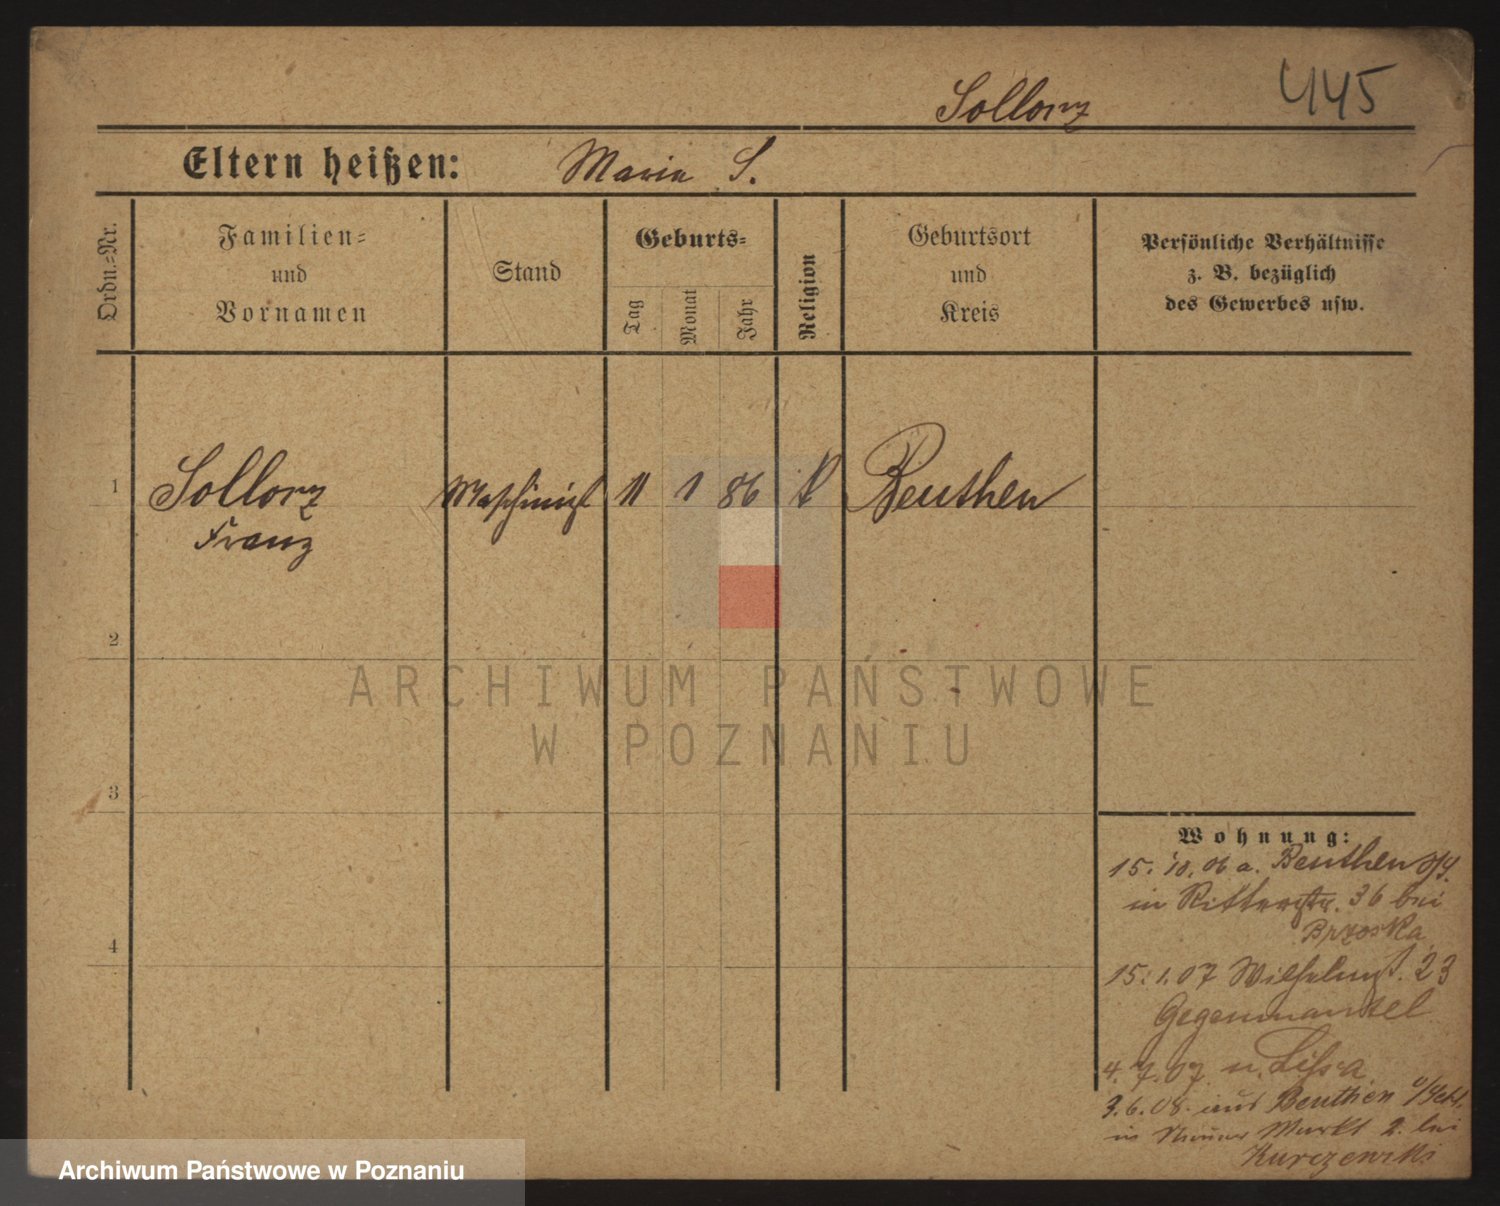 Sollorz
445
Eltern heißen: Maria S.
Ordn.-Nr.
Familien-
und
Vornamen
Stand
Geburts-
Tag
Monat
Jahr
Religion
Geburtsort
und
Kreis
Persönliche Verhältnisse
z. B. bezüglich
des Gewerbes usw.
1
Sollorz
Franz
Maschinist
11
1
86
k
Beuthen
2
3
4
Wohnung:
15. 10. 06 a. Beuthen
in Ritterstr. 36 bei
Brzoska
15. 1. 07 Wilhelmst. 23
4. 7. 07 n. Lissa
3. 6. 08 aus Beuthen
in Markt 2. bei
Kurczewski
ARCHIWUM PAŃSTWOWE
W POZNANIU
Archiwum Państwowe w Poznaniu